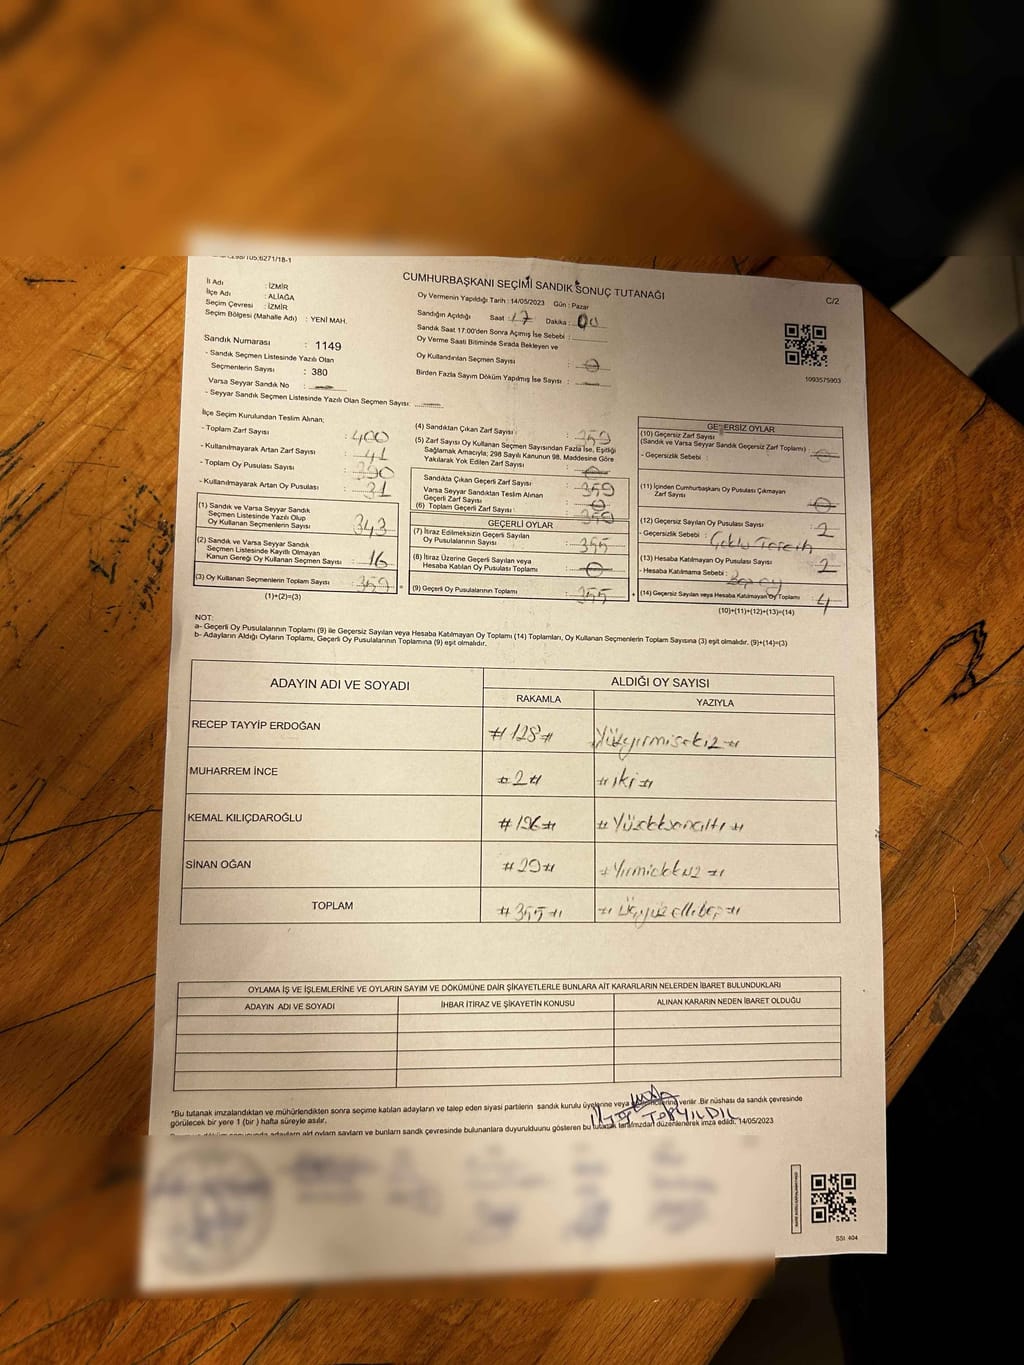 CUMHURBAŞKANI SEÇİMİ SANDIK SONUÇ TUTANAĞI
C/2
İl Adı : İZMİR
İlçe Adı : ALİAĞA
Seçim Çevresi : İZMİR
Seçim Bölgesi (Mahalle Adı) : YENİ MAH.
Oy Vermenin Yapıldığı Tarih : 14/05/2023 Gün : Pazar
Sandığın Açıldığı Saat : 17 Dakika : 00
Sandık Saat 17:00'den Sonra Açımış İse Sebebi :
Oy Verme Saati Bitiminde Sırada Bekleyen ve
Oy Kullandırılan Seçmen Sayısı :
Birden Fazla Sayım Döküm Yapılmış İse Sayısı :
1093575903
Sandık Numarası : 1149
- Sandık Seçmen Listesinde Yazılı Olan
Seçmenlerin Sayısı : 380
Varsa Seyyar Sandık No :
- Seyyar Sandık Seçmen Listesinde Yazılı Olan Seçmen Sayısı:
İlçe Seçim Kurulundan Teslim Alınan;
- Toplam Zarf Sayısı : 400
- Kullanılmayarak Artan Zarf Sayısı : 41
- Toplam Oy Pusulası Sayısı : 390
- Kullanılmayarak Artan Oy Pusulası : 31
(1) Sandık ve Varsa Seyyar Sandık
Seçmen Listesinde Yazılı Olup
Oy Kullanan Seçmenlerin Sayısı : 343
(2) Sandık ve Varsa Seyyar Sandık
Seçmen Listesinde Kayıtlı Olmayan
Kanun Gereği Oy Kullanan Seçmen Sayısı : 16
(3) Oy Kullanan Seçmenlerin Toplam Sayısı : 359
(1)+(2)=(3)
(4) Sandıktan Çıkan Zarf Sayısı : 359
(5) Zarf Sayısı Oy Kullanan Seçmen Sayısından Fazla İse, Eşitliği
Sağlamak Amacıyla; 298 Sayılı Kanunun 98. Maddesine Göre
Yakılarak Yok Edilen Zarf Sayısı :
Sandıkta Çıkan Geçerli Zarf Sayısı : 359
Varsa Seyyar Sandıktan Teslim Alınan
Geçerli Zarf Sayısı :
(6) Toplam Geçerli Zarf Sayısı : 359
GEÇERLİ OYLAR
(7) İtiraz Edilmeksizin Geçerli Sayılan
Oy Pusulalarının Sayısı : 355
(8) İtiraz Üzerine Geçerli Sayılan veya
Hesaba Katılan Oy Pusulası Toplamı :
(9) Geçerli Oy Pusulalarının Toplamı : 355
GEÇERSİZ OYLAR
(10) Geçersiz Zarf Sayısı
(Sandık ve Varsa Seyyar Sandık Geçersiz Zarf Toplamı) :
- Geçersizlik Sebebi :
(11) İçinden Cumhurbaşkanı Oy Pusulası Çıkmayan
Zarf Sayısı :
(12) Geçersiz Sayılan Oy Pusulası Sayısı : 2
- Geçersizlik Sebebi :
(13) Hesaba Katılmayan Oy Pusulası Sayısı : 2
- Hesaba Katılmama Sebebi :
(14) Geçersiz Sayılan veya Hesaba Katılmayan Oy Toplamı : 4
(10)+(11)+(12)+(13)=(14)
NOT:
a- Geçerli Oy Pusulalarının Toplamı (9) ile Geçersiz Sayılan veya Hesaba Katılmayan Oy Toplamı (14) Toplamları, Oy Kullanan Seçmenlerin Toplam Sayısına (3) eşit olmalıdır. (9)+(14)=(3)
b- Adayların Aldığı Oyların Toplamı, Geçerli Oy Pusulalarının Toplamına (9) eşit olmalıdır.
ADAYIN ADI VE SOYADI ALDIĞI OY SAYISI
RAKAMLA YAZIYLA
RECEP TAYYİP ERDOĞAN #128# Yüzyirmisekiz #
MUHARREM İNCE #2# # iki #
KEMAL KILIÇDAROĞLU #196#
SİNAN OĞAN #29# # Yirmidokuz #
TOPLAM #355# # Üçyüzellibeş #
OYLAMA İŞ VE İŞLEMLERİNE VE OYLARIN SAYIM VE DÖKÜMÜNE DAİR ŞİKAYETLERLE BUNLARA AİT KARARLARIN NELERDEN İBARET BULUNDUKLARI
ADAYIN ADI VE SOYADI İHBAR İTİRAZ VE ŞİKAYETİN KONUSU ALINAN KARARIN NEDEN İBARET OLDUĞU
*Bu tutanak imzalandıktan ve mühürlendikten sonra seçime katılan adayların ve talep eden siyasi partilerin sandık kurulu üyelerine veya verilir .Bir nüshası da sandık çevresinde
görülecek bir yere 1 (bir ) hafta süreyle asılır.
TOPYILDIZ
bulunanlara duyurulduunu gösteren bu tutanak tarafımızdan düzenlenerek imza edildi. 14/05/2023
SSI: 404